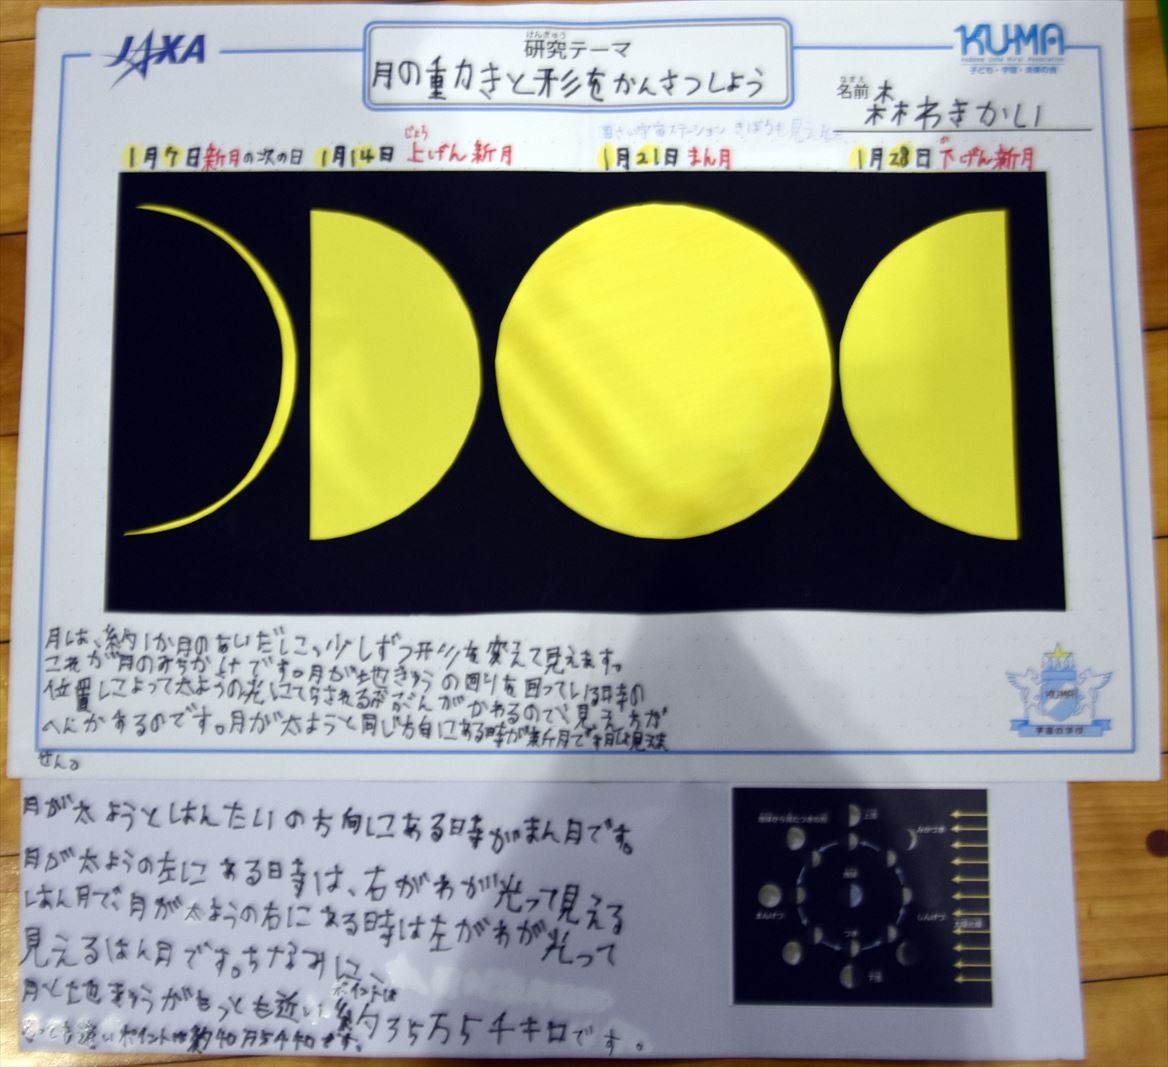 JAXA
けんきゅう
研究テーマ
月の動きと形をかんさつしよう
KU-MA
子ども・宇宙・未来の会
なまえ
名前 森わきかい
宇宙ステーション きぼうも見えた
1月7日新月の次の日
じょう
1月14日 上げん新月
1月21日 まん月
か
1月28日 下げん新月
月は、約1か月のあいだに、少しずつ形を変えて見えます。
これが月のみちかけです。月が地きゅうの回りを回っている時の
位置によって太ようの光にてらされるぶぶんがかわるので、見え方が
へんかするのです。月が太ようと同じ方向にある時が新月で月は見えま
せん。
KUMA
宇宙の学校
月が太ようとはんたいの方向にある時がまん月です。
月が太ようの左にある時は、右がわが光って見える
はん月で、月が太ようの右にある時は左がわが光って
見えるはん月です。ちなみに
月と地きゅうがもっとも近いポイントは
約35万5千キロです。
もっとも遠いポイントは約40万5千キロです。
地球から見たつきの形
上弦
みかづき
地球
まんげつ
しんげつ
太陽光線
つき
下弦